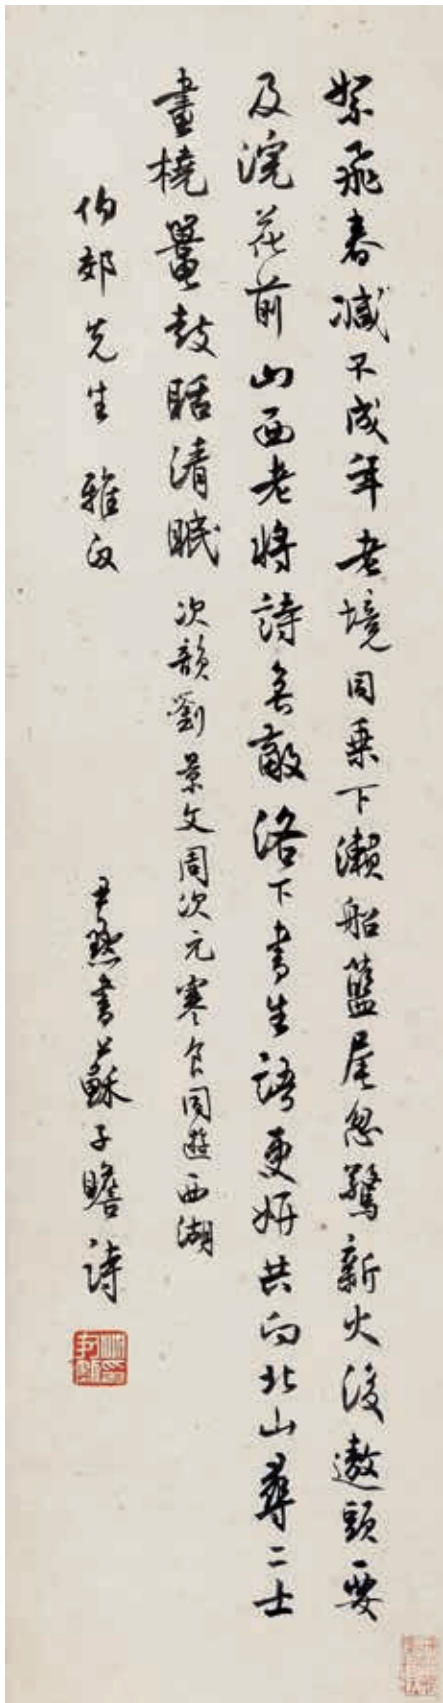 絮飛春減不成年老境同乘下瀨船藍尾忽驚新火後遨頭要
及浣花前山西老將詩無敵洛下書生語更妍共向北山尋二士
畫橈鼉鼓聒清眠 次韻劉景文周次元寒食同遊西湖
伯郊先生 雅正 尹默書蘇子瞻詩